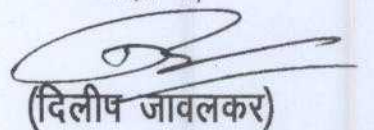 (दिलीप जावलकर)